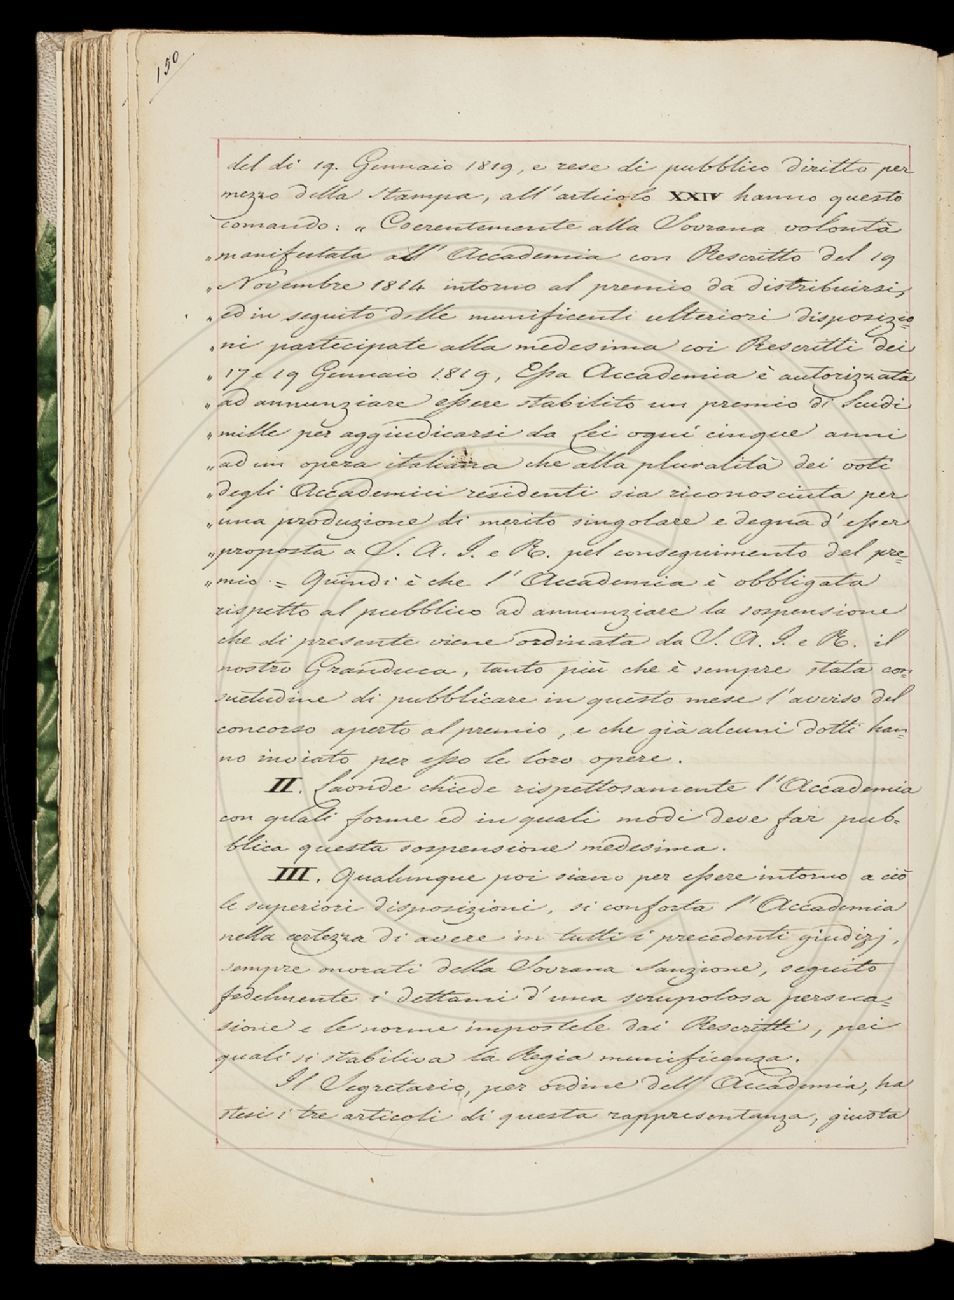 150
del di 19. Gennaio 1819, e rese di pubblico diritto per
mezzo della stampa, all'articolo XXIV hanno questo
comando: „ Coerentemente alla Sovrana volontà
„ manifestata all'Accademia con Rescritto del 19
„ Novembre 1814 intorno al premio da distribuirsi,
„ ed in seguito delle munificenti ulteriori disposizio=
„ ni partecipate alla medesima coi Rescritti dei
„ 17 e 19 Gennaio 1819, Essa Accademia è autorizzata
„ ad annunziare essere stabilito un premio di Scudi
„ mille per aggiudicarsi da Lei ogni cinque anni
„ ad un opera italiana che alla pluralità dei voti
„ degli Accademici residenti sia riconosciuta per
„ una produzione di merito singolare e degna d'esser
„ proposta a S. A. I. e R. pel conseguimento del pre=
„ mio = Quindi è che l'Accademia è obbligata
rispetto al pubblico ad annunziare la sospensione
che di presente viene ordinata da S. A. I. e R. il
nostro Granduca, tanto più che è sempre stata con=
suetudine di pubblicare in questo mese l'avviso del
concorso aperto al premio, e che già alcuni dotti han=
no inviato per esso le loro opere.
II. Laonde chiede rispettosamente l'Accademia
con quali forme ed in quali modi deve far pub=
blica questa sospensione medesima.
III. Qualunque poi siano per essere intorno a ciò
le superiori disposizioni, si conforta l'Accademia
nella certezza di avere in tutti i precedenti giudizj,
sempre onorati della Sovrana Sanzione, seguito
fedelmente i dettami d'una scrupolosa persua=
sione e le norme impostele dai Rescritti, pei
quali si stabiliva la Regia munificenza.
Il Segretario, per ordine dell'Accademia, ha
stesi i tre articoli di questa rappresentanza, giusta